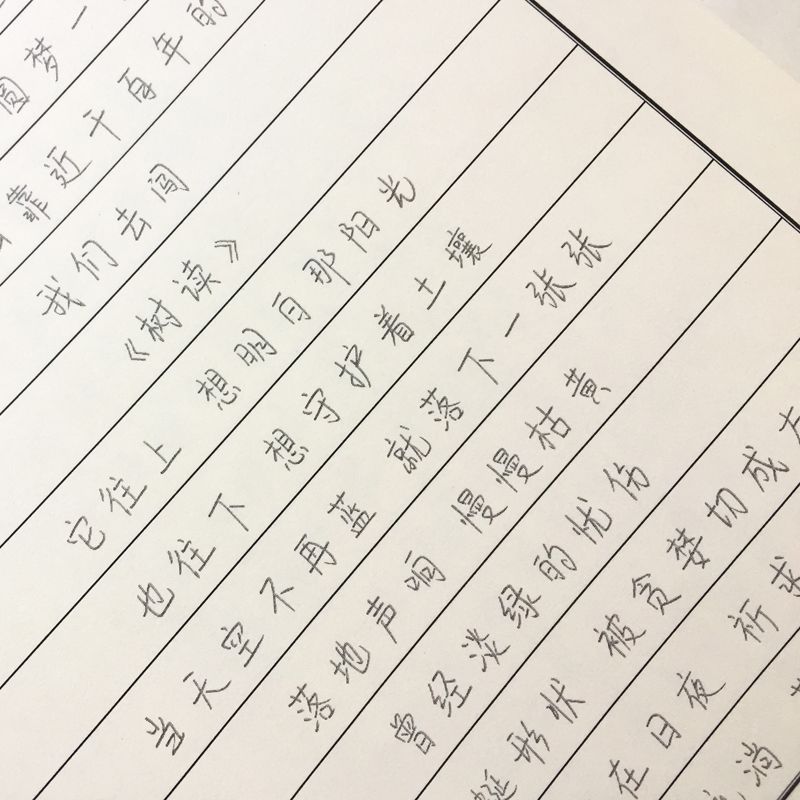 圆梦一
靠近千百年的
我们去闯
《树读》
它往上 想明白那阳光
也往下 想守护着土壤
当天空不再蓝 就落下一张张
落地声响 慢慢枯黄
曾经淡绿的忧伤
蜒形状 被贪婪切成
在日夜 祈求
淌